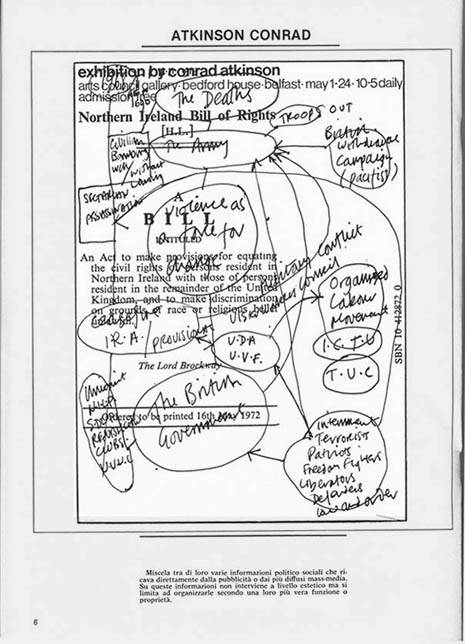 ATKINSON CONRAD
exhibition by conrad atkinson
arts council gallery · bedford house · belfast · may 1·24 · 10·5 daily
admission free
The Deaths
Northern Ireland Bill of Rights
TROOPS OUT
[H.L.]
The Army
British
withdrawal
campaign
(pacifist)
Civilian
Bombing
with
without
warning
SECTARIAN
ASSASSINATION
A
BILL
INTITULED
Violence as
a force for
change
An Act to make provisions for equating
the civil rights of persons resident in
Northern Ireland with those of persons
resident in the remainder of the United
Kingdom, and to make discrimination
on grounds of race or religious belief
unlawful.
military conflict
council
Organised
Labour
Movement
I.C.T.U
T.U.C
SBN 10 412872 0
I.R.A.
PROVISIONAL
U.D.A
U.V.F.
The Lord Brockway
The British
Government
Ordered to be printed 16th May 1972
Unionist
CLUBS
Internment
Terrorists
Patriots
Freedom Fighters
Liberators
Defenders
law and order
Miscela tra di loro varie informazioni politico sociali che ri-
cava direttamente dalla pubblicità o dai più diffusi mass-media.
Su queste informazioni non interviene a livello estetico ma si
limita ad organizzarle secondo una loro più vera funzione o
proprietà.
6